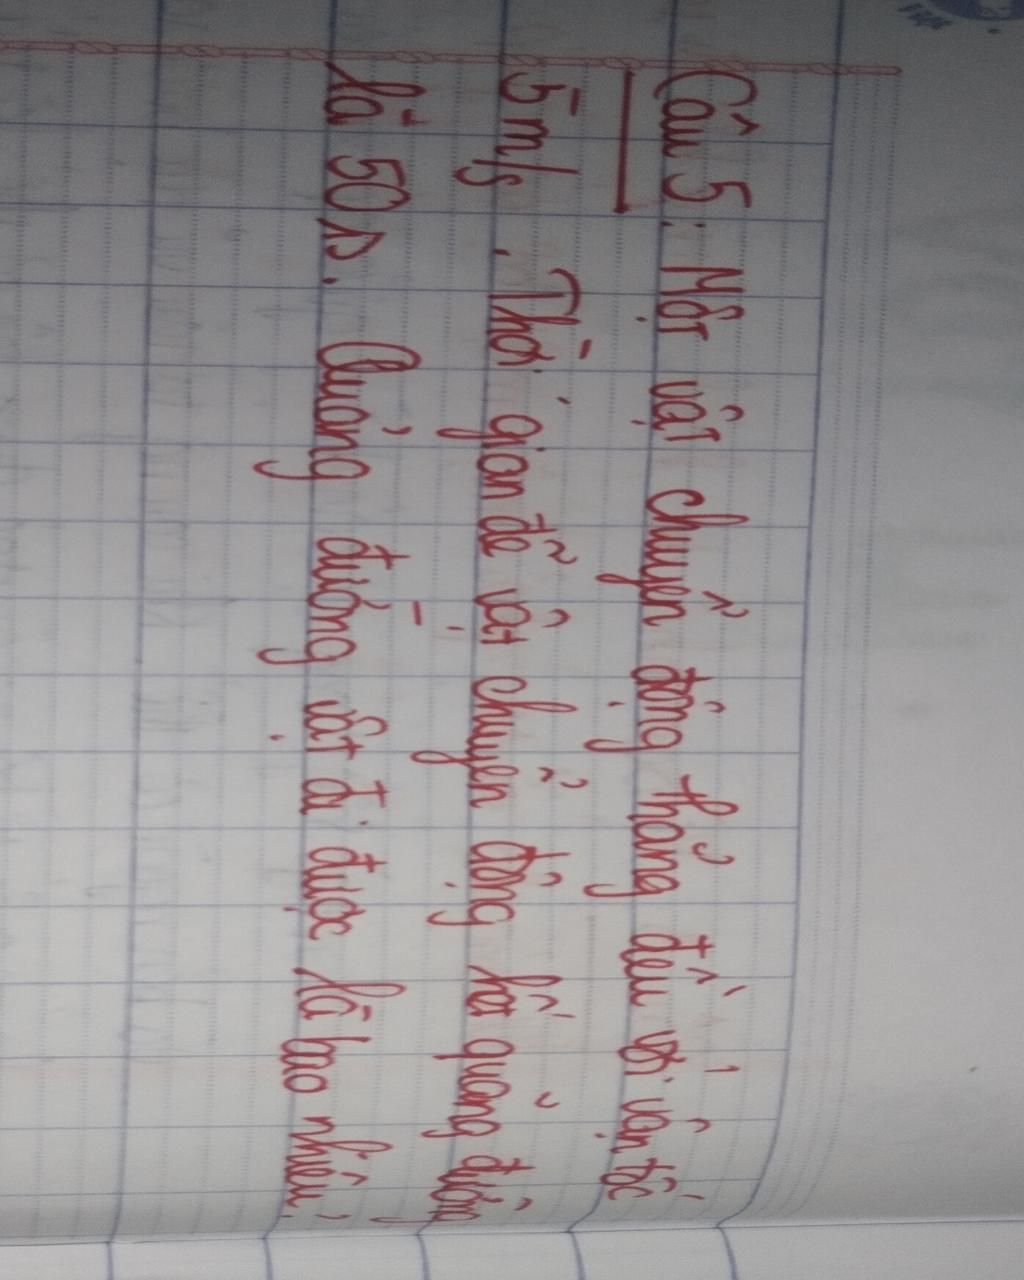 Câu 5: Một vật chuyển động thẳng đều với vận tốc
5m/s. Thời gian để vật chuyển động hết quảng đường
là 50s. Quảng đường vật đi được là bao nhiêu.